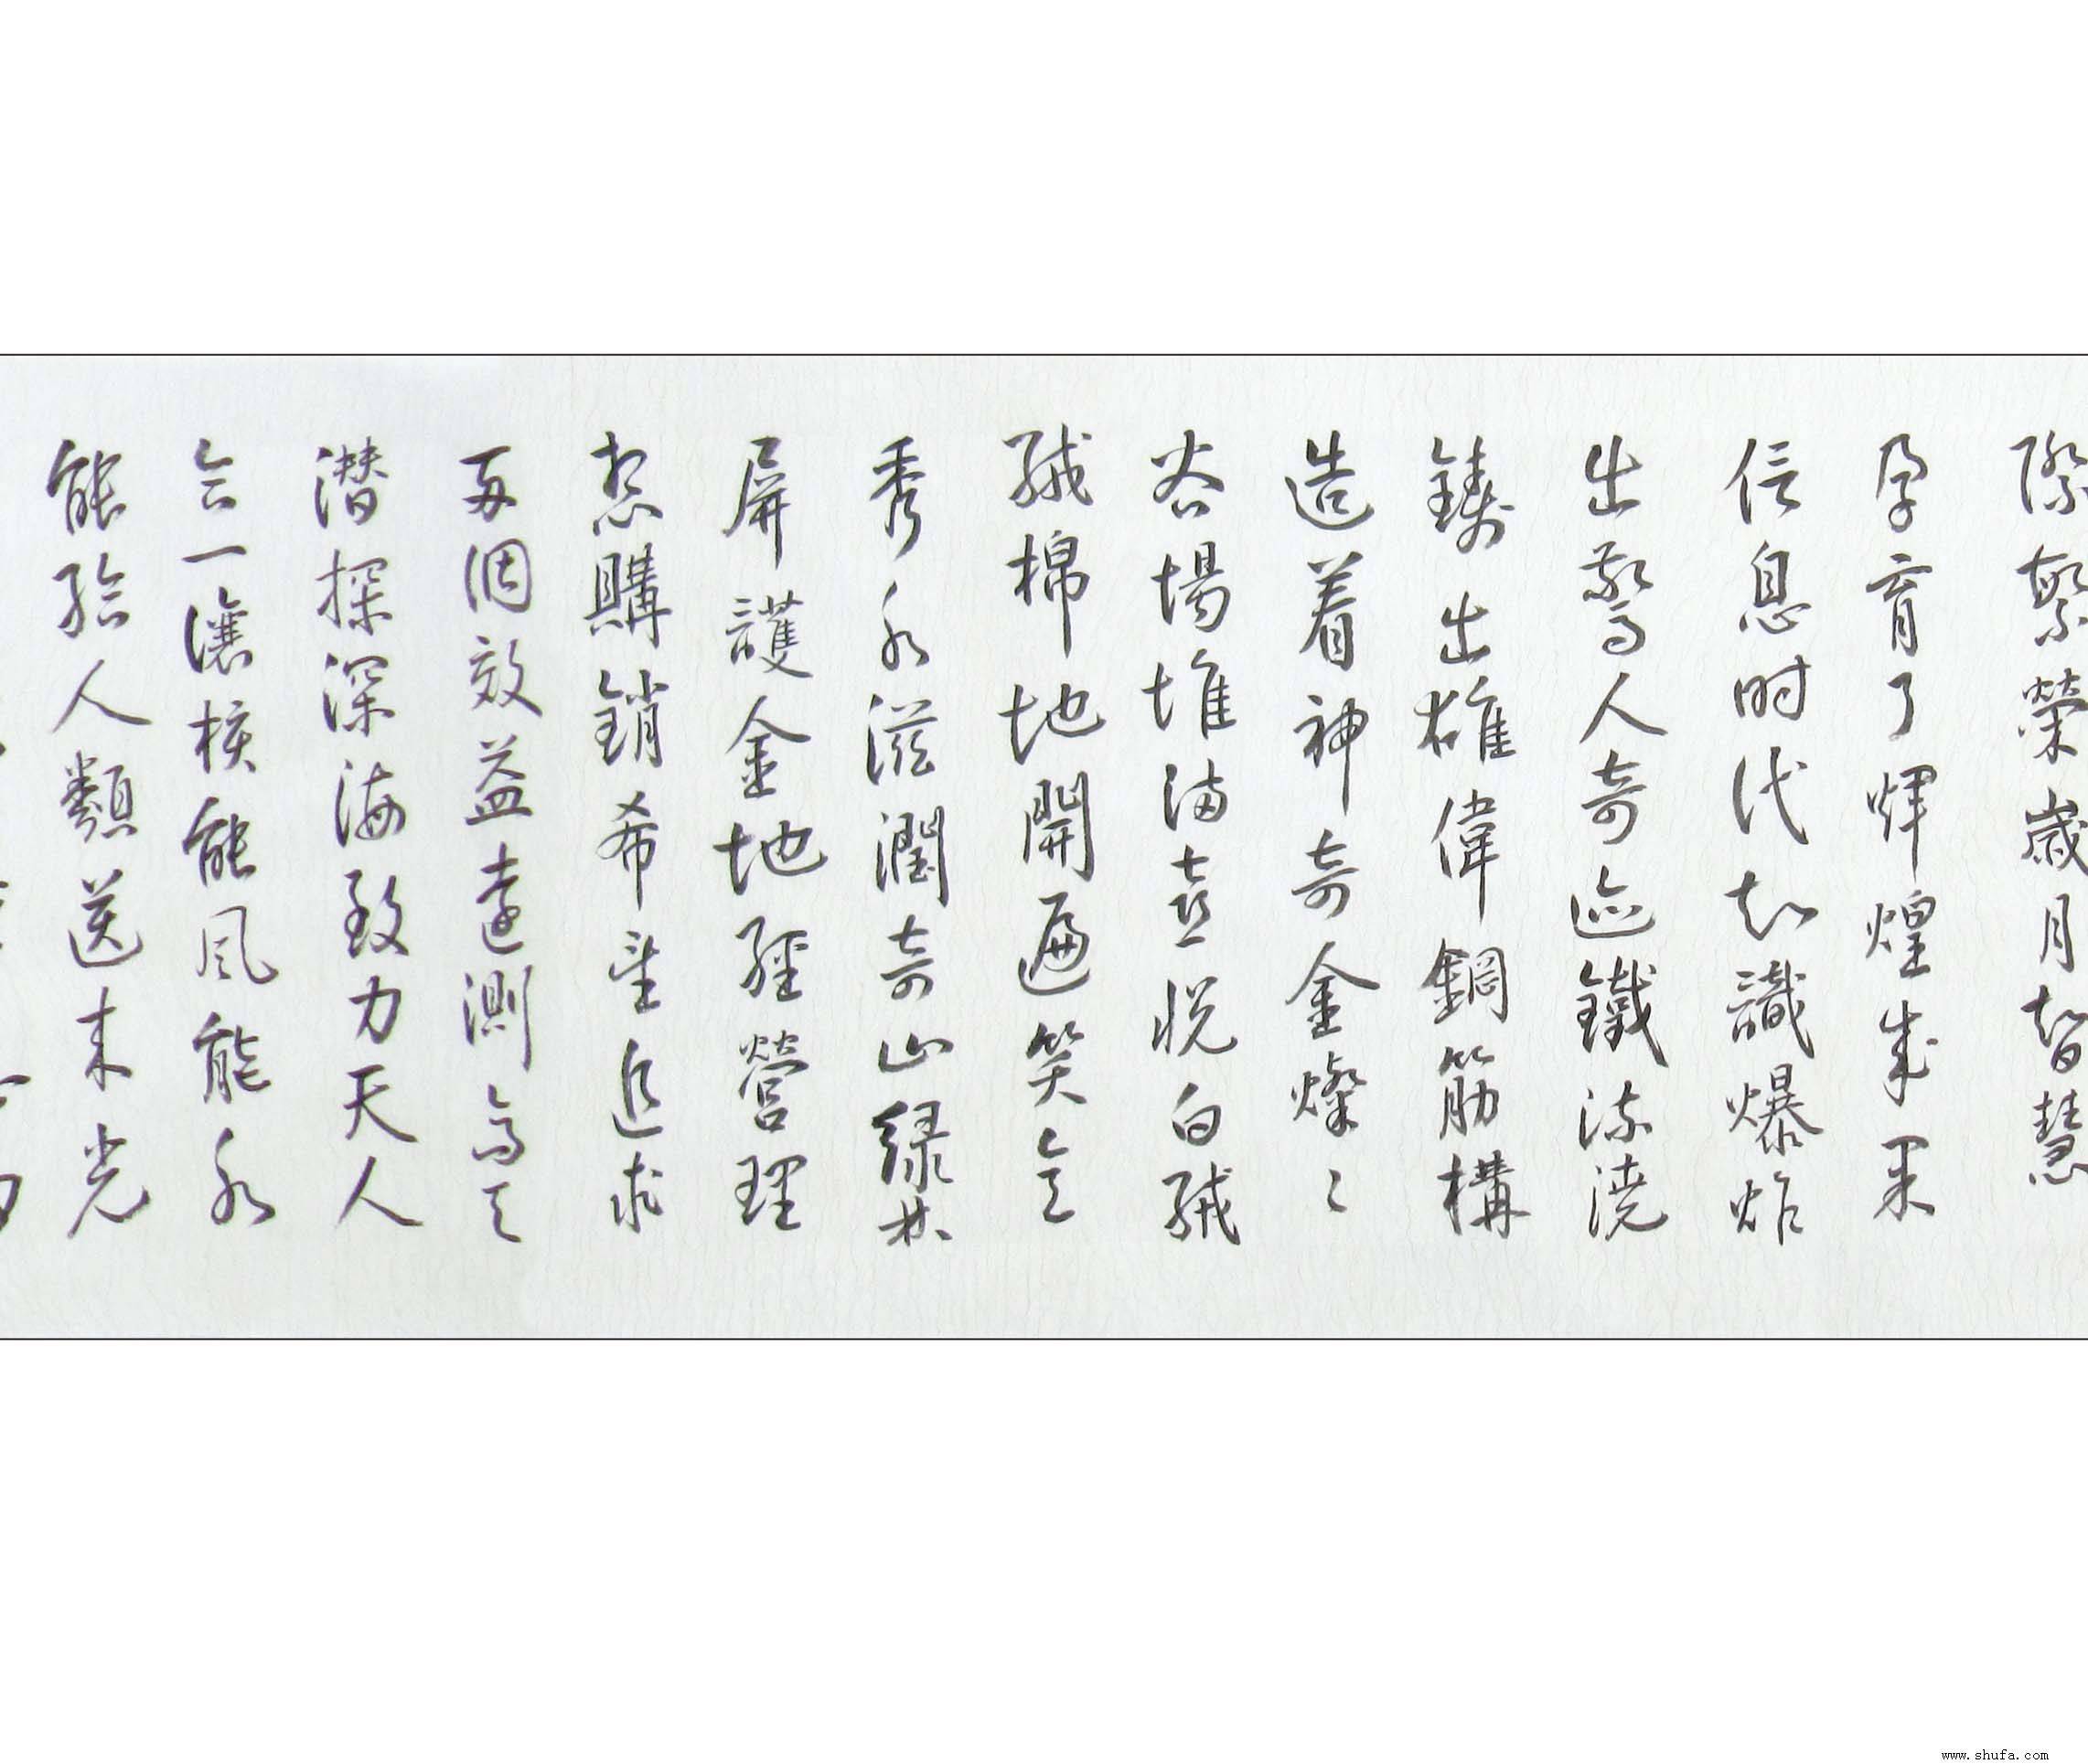 際繁榮歲月智慧
孕育了輝煌成果
信息时代知識爆炸
出驚人奇迹鐵流澆
鑄出雄偉鋼筋構
造着神奇金燦々
谷場堆满喜悦白絨
絨棉地開遍笑
秀水滋潤奇山緑林
屏護金地經營理
想購銷希望追求
两個效益遠測高天
潜探深海致力天人
合一讓核能風能水
能給人類送来光
www.shufa.com